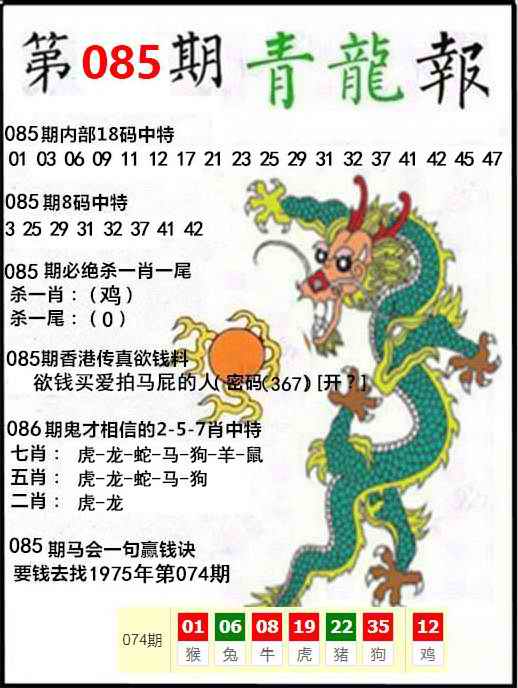 第085期青龍報
085期内部18码中特
01 03 06 09 11 12 17 21 23 25 29 31 32 37 41 42 45 47
085期8码中特
3 25 29 31 32 37 41 42
085 期必绝杀一肖一尾
杀一肖：（鸡）
杀一尾：（0）
085期香港传真欲钱料
欲钱买爱拍马屁的人( 密码(367) [开？]
086期鬼才相信的2-5-7肖中特
七肖： 虎-龙-蛇-马-狗-羊-鼠
五肖： 虎-龙-蛇-马-狗
二肖： 虎-龙
085 期马会一句赢钱诀
要钱去找1975年第074期
074期 01 06 08 19 22 35 12
猴 兔 牛 虎 猪 狗 鸡